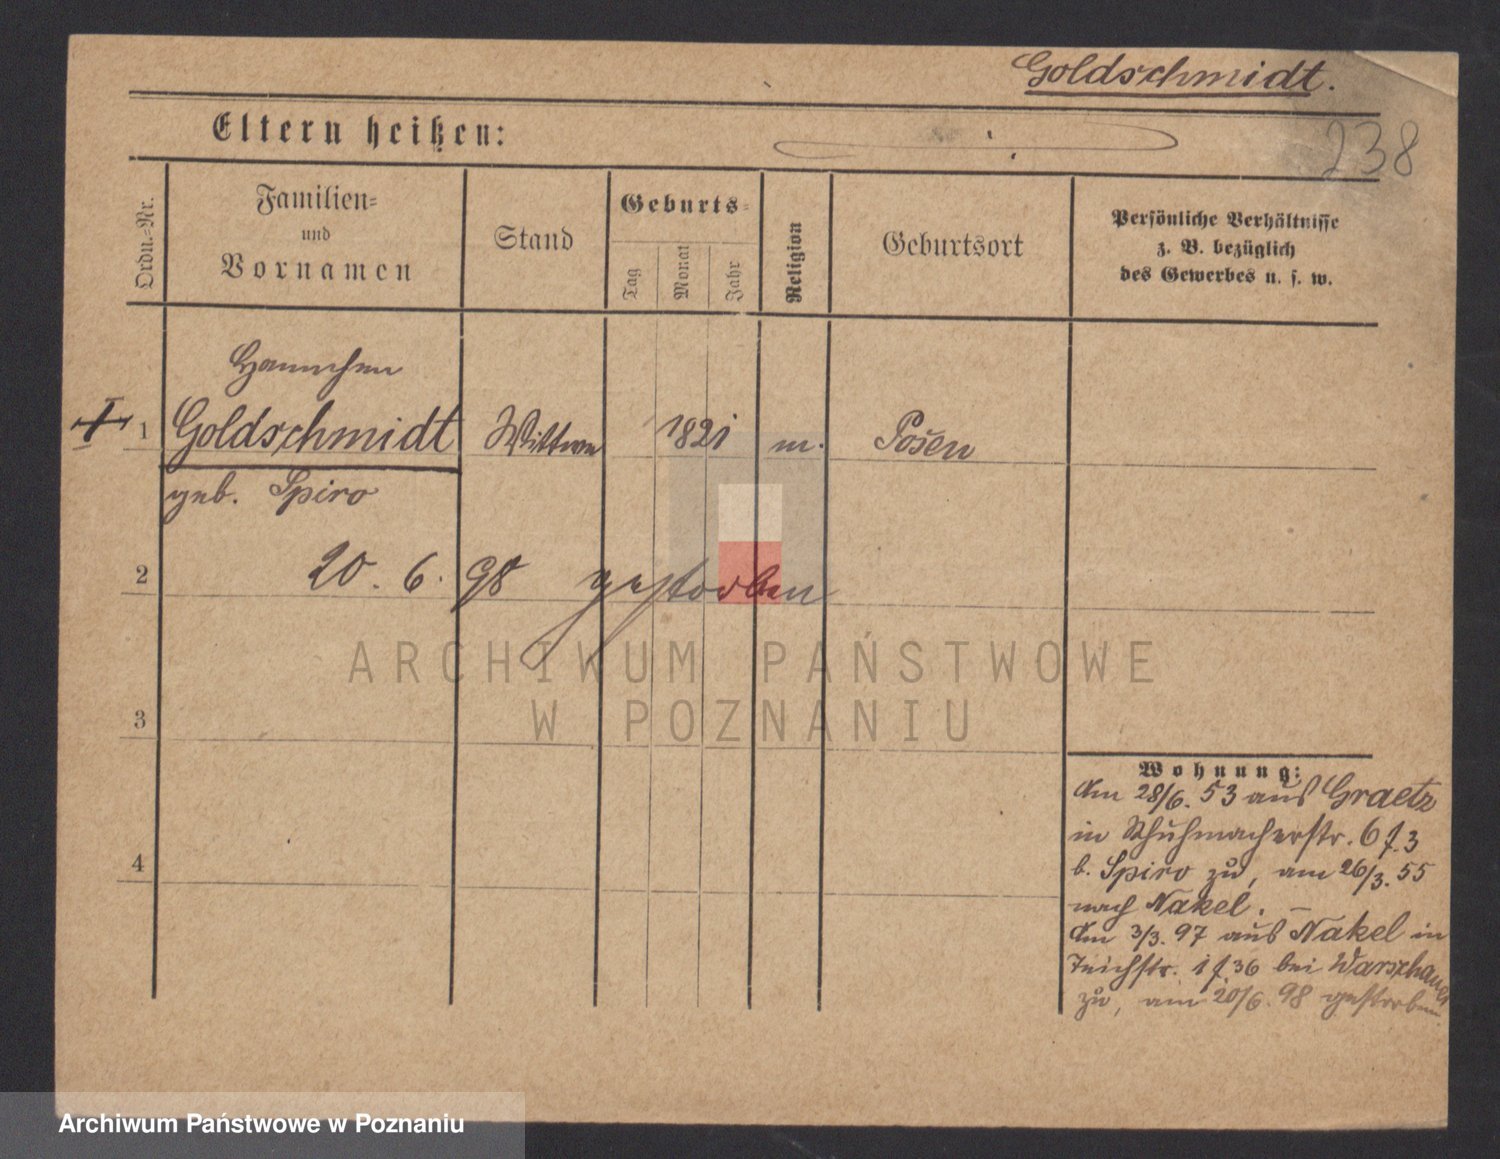 Goldschmidt.
238
Eltern heißen:
Ordn.-Nr.
Familien=
und
Vornamen
Stand
Geburts=
Tag
Monat
Jahr
Religion
Geburtsort
Persönliche Verhältnisse
z. B. bezüglich
des Gewerbes u. s. w.
Hannchen
1 Goldschmidt Wittwe 1821 m. Posen
geb. Spiro
2 20. 6. 98 gestorben
3
4
Wohnung:
Am 28/6. 53 aus Graetz
in Schuhmacherstr. 6 f. 3
b. Spiro zu, am 26/3. 55
nach Nakel. –
Am 3/3. 97 aus Nakel in
Teichstr. 1 f. 36 bei Warschauer
zu, am 20/6. 98 gestorben.
ARCHIWUM PAŃSTWOWE
W POZNANIU
Archiwum Państwowe w Poznaniu